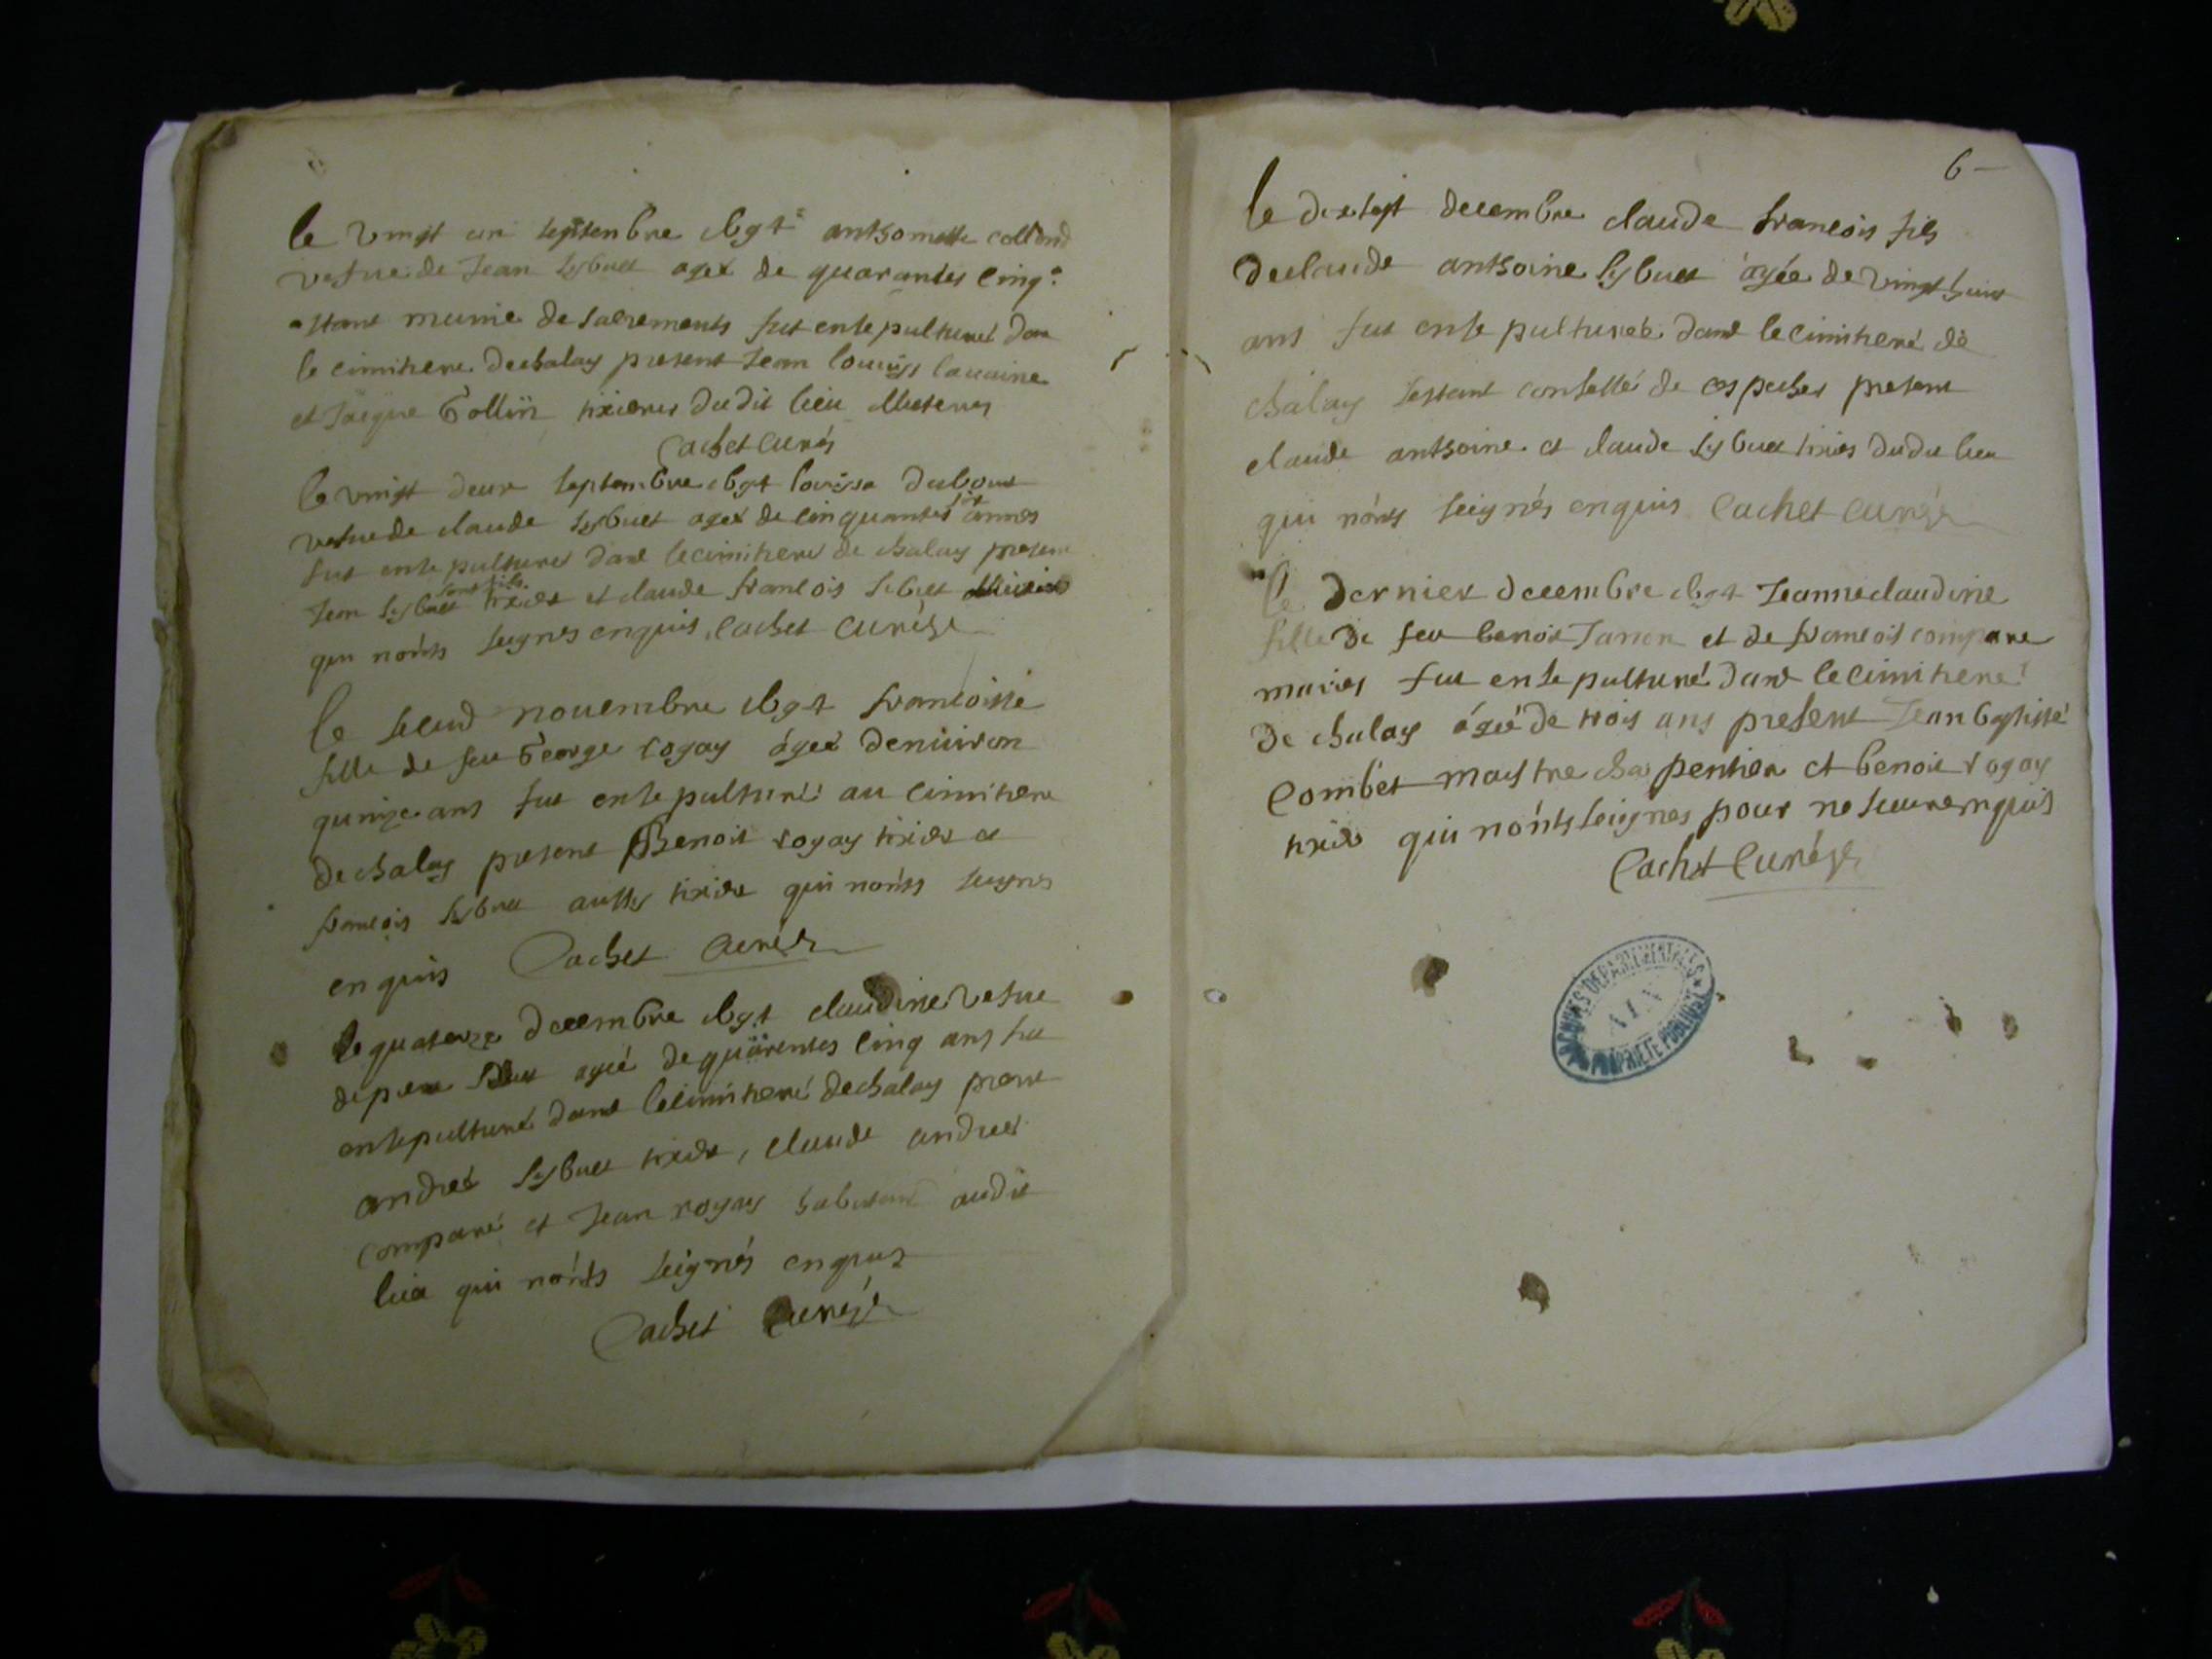 le vingt un septembre anthomette collond
vefue de Jean sybuet agex de quarantes cinq
estant munie de sacrements fut ensepulturé dan
le cimitiere de chalay present Jean louiys lauaine
et Jacque Gollin tixieres dudit lieu
Cachet Curés
le vingt deux septembre louisse dubout
vefue de claude sybuet agex de cinquantes six annes
fut ensepulturé dans le cimitiere de chalay present
Jean sybuet sont fils tixier et claude francois sibuet
qui nonts seignes enquis Cachet Curé
le segond nouembre francoisse
fille de feu George rogay ageé denuiron
quinze ans fut ensepulturé au cimitiere
de chalay present Benoit rogay tixier et
francois sybuet aussy tixier qui nonts seignes
enquis Cachet Curé
le quatorze decembre claudine vefue
de piere ageé de quarentes cinq ans fut
ensepulturé dans le cimitieré de chalay presnt
andreé sybuet tixier, claude andreé
comparé et Jean rogay habitant audit
lieu qui nonts seignés enquis
Cachet Curé
6
le dixsept decembre claude francois fils
de claude anthoine sybuet ageé de vingt huit
ans fut ensepulturéé dans le cimitieré de
chalay sestant confessé de ces peches present
claude anthoine et claude sybuet tixies dudit lieu
qui nonts seignés enquis Cachet Curé
le dernier decembre Jeanne claudine
fille de feu benoit Janin et de francois compare
maries fut ensepulturé dans le cimitieré
de chalay ageé de trois ans present Jean baptisté
Combet maystre charpentier et benoit rogay
tixier qui nonts seignes pour ne scauoir enquis
Cachet Curé
ARCHIVES DEPARTEMENTALES
AIN
PROPRIETE PUBLIQUE